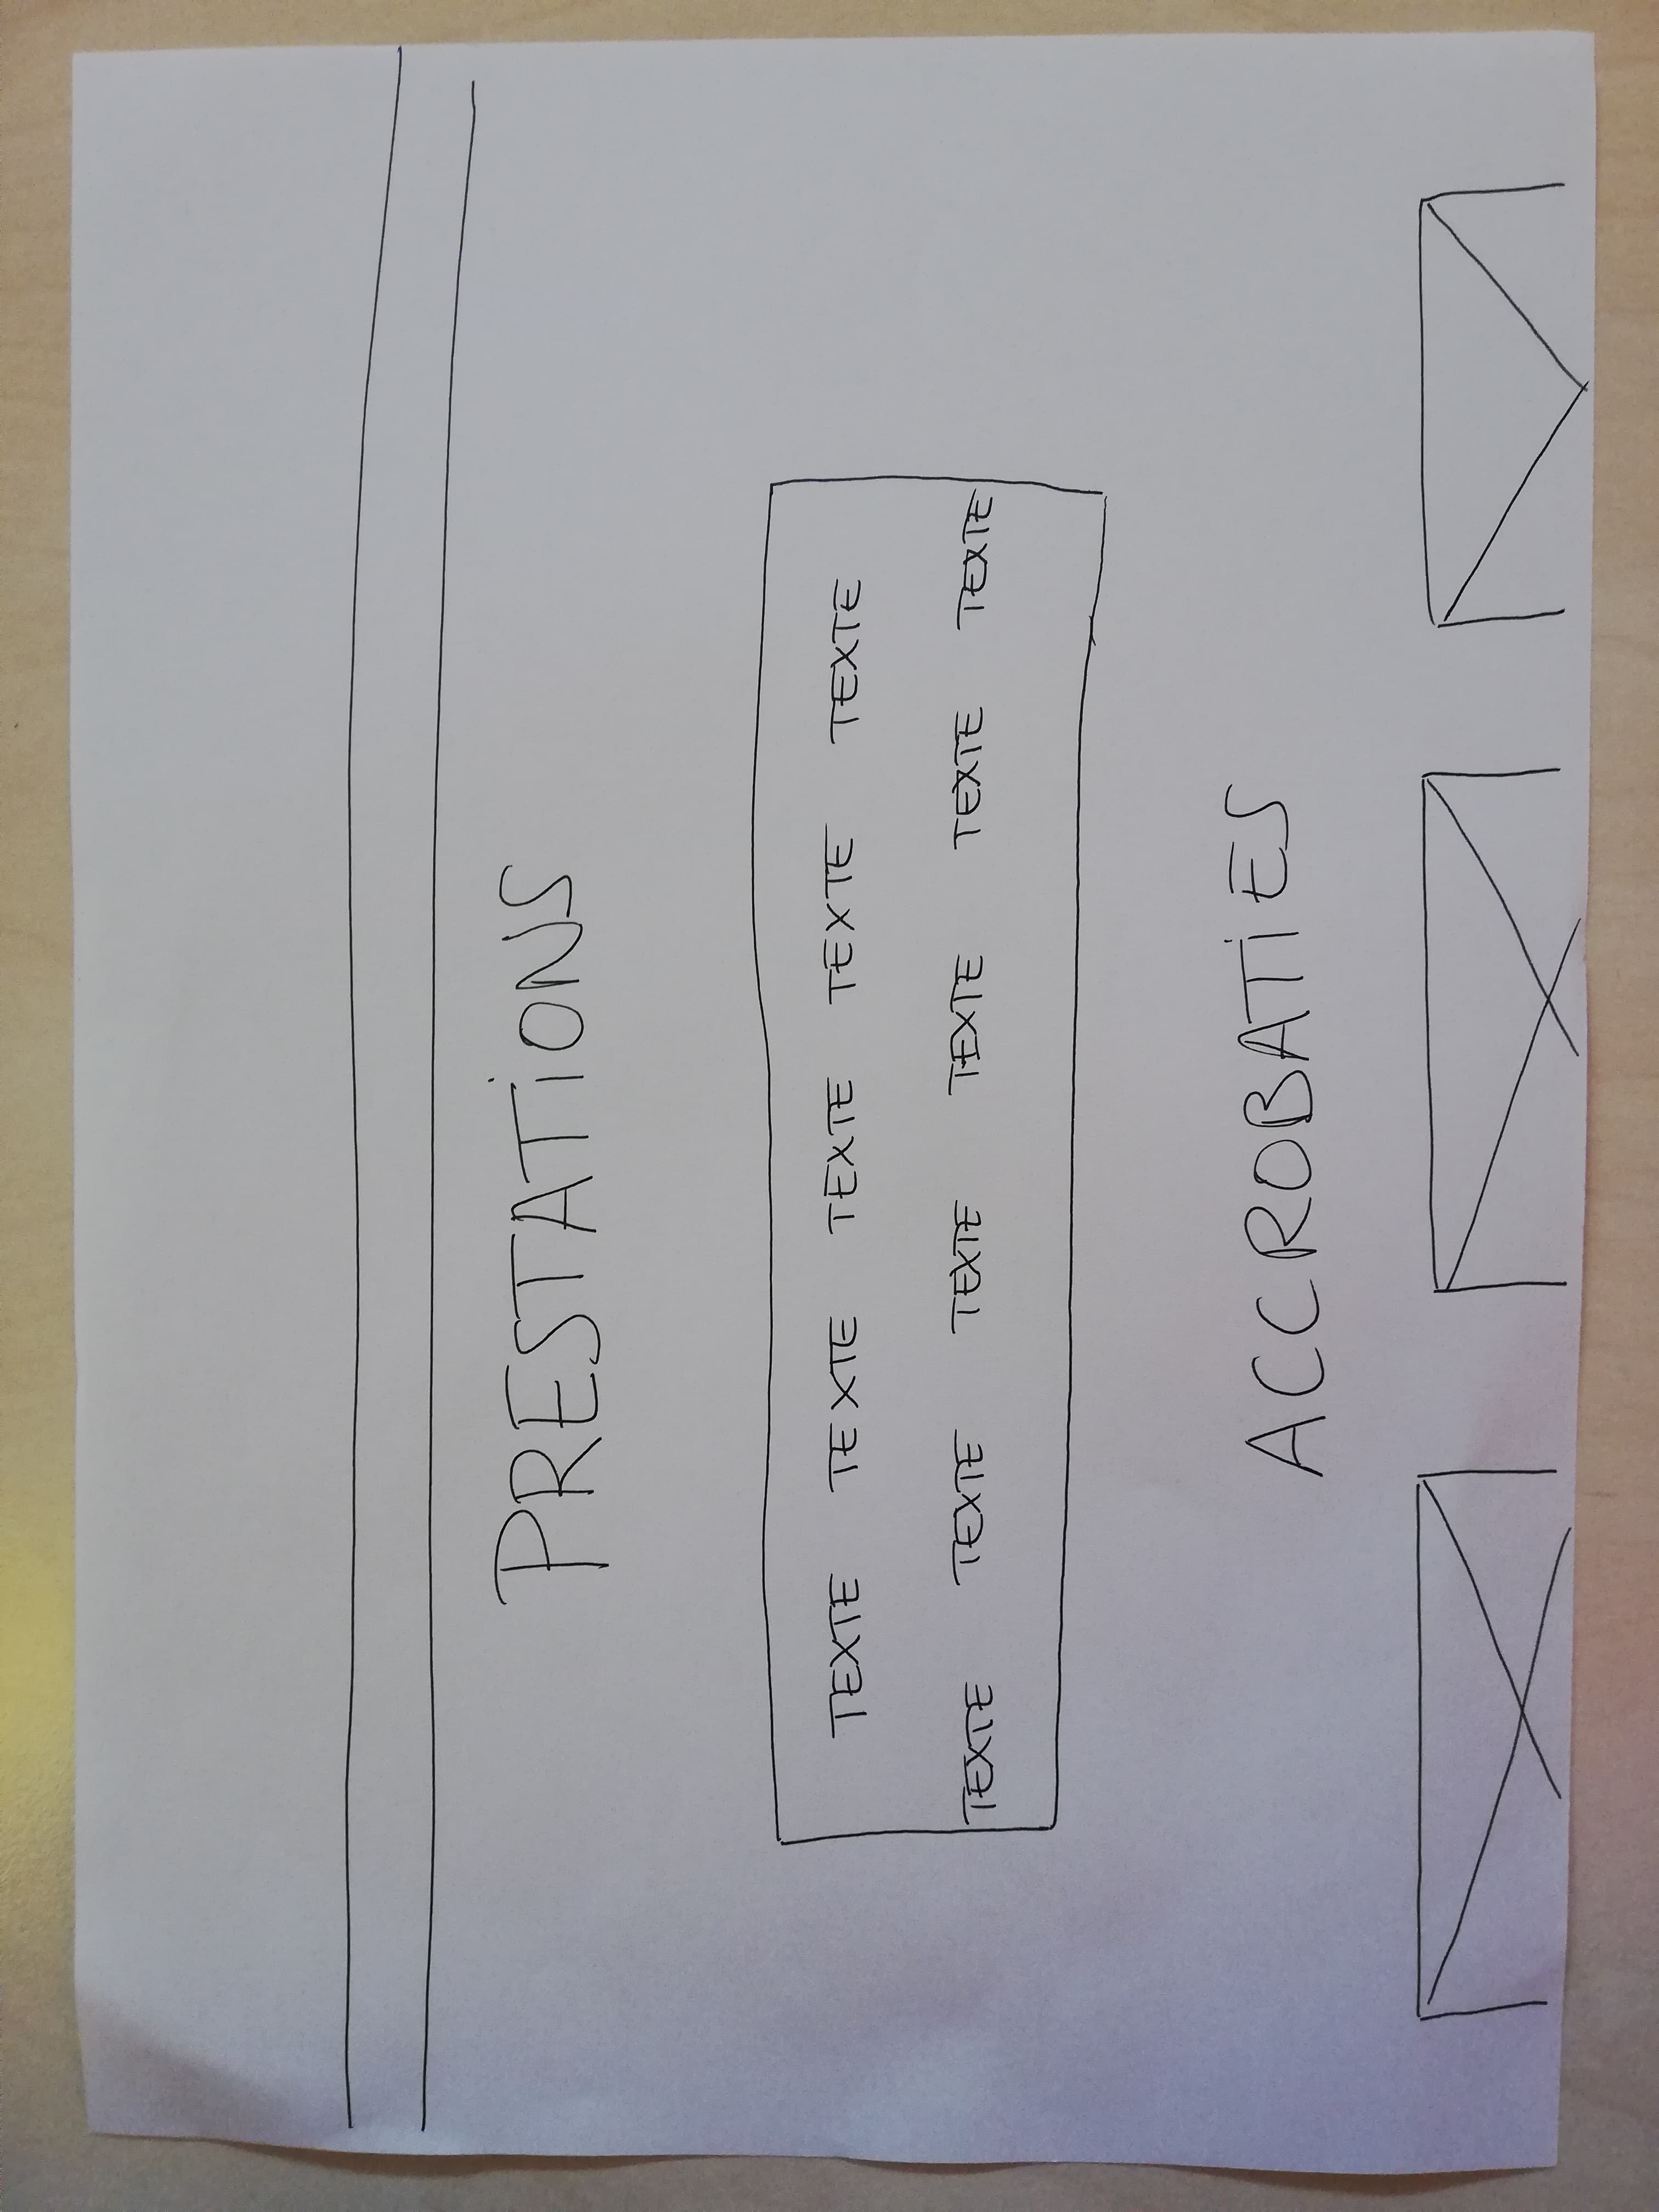 PRESTATiONS
TEXTE TEXTE TEXTE TEXTE TEXTE
TEXTE TEXTE TEXTE TEXTE TEXTE TEXTE
ACCROBATiES